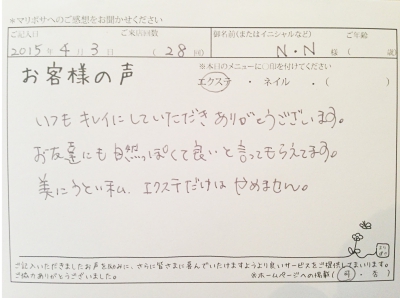 ※マリポサへのご感想をお聞かせください
ご記入日 ご来店回数 御名前(またはイニシャルなど) ご年齢
2015年 4月 3日 (28回) N・N 様 ( 歳)
お客様の声
※本日のメニューに○印を付けてください
エクステ ・ ネイル ・( )
いつも キレイにしていただき ありがとうございます。
お友達にも 自然っぽくて良いと言ってもらえてます。
美にうとい私、エクステだけは やめません。
ご記入いただきましたお声をNo.1に、さらに皆さまに喜んでいただけますようより良いサービスをご提供してまいります。
ご協力ありがとうございました。 ※ホームページへの掲載( 可 ・ 否 )